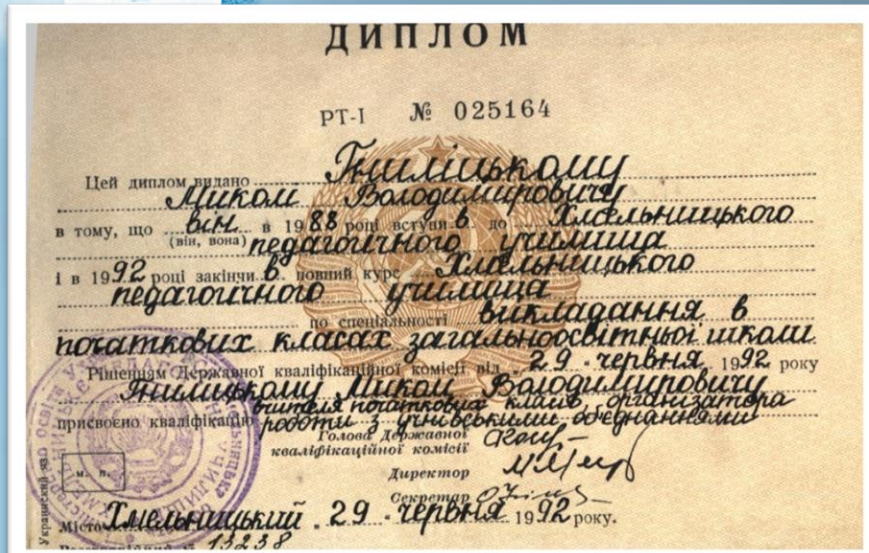 ДИПЛОМ
РТ-I № 025164
Цей диплом видано Гниліцькому
Миколі Володимировичу
в тому, що він в 1988 році вступив до Хмельницького
(він, вона) педагогічного училища
і в 1992 році закінчив повний курс Хмельницького
педагогічного училища
по спеціальності викладання в
початкових класах загальноосвітньої школи
Рішенням Державної кваліфікаційної комісії від 29 червня 1992 року
Гнилицькому Миколі Володимировичу
присвоєно кваліфікацію вчителя початкових класів, організатора
роботи з учнівськими об'єднаннями
Голова Державної
кваліфікаційної комісії
Директор
Секретар
м. п.
Місто Хмельницький 29 червня 1992 року.
13238